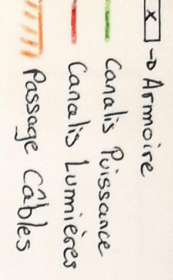 x → Armoire
Canalis Puissance
Canalis Lumières
Passage Câbles